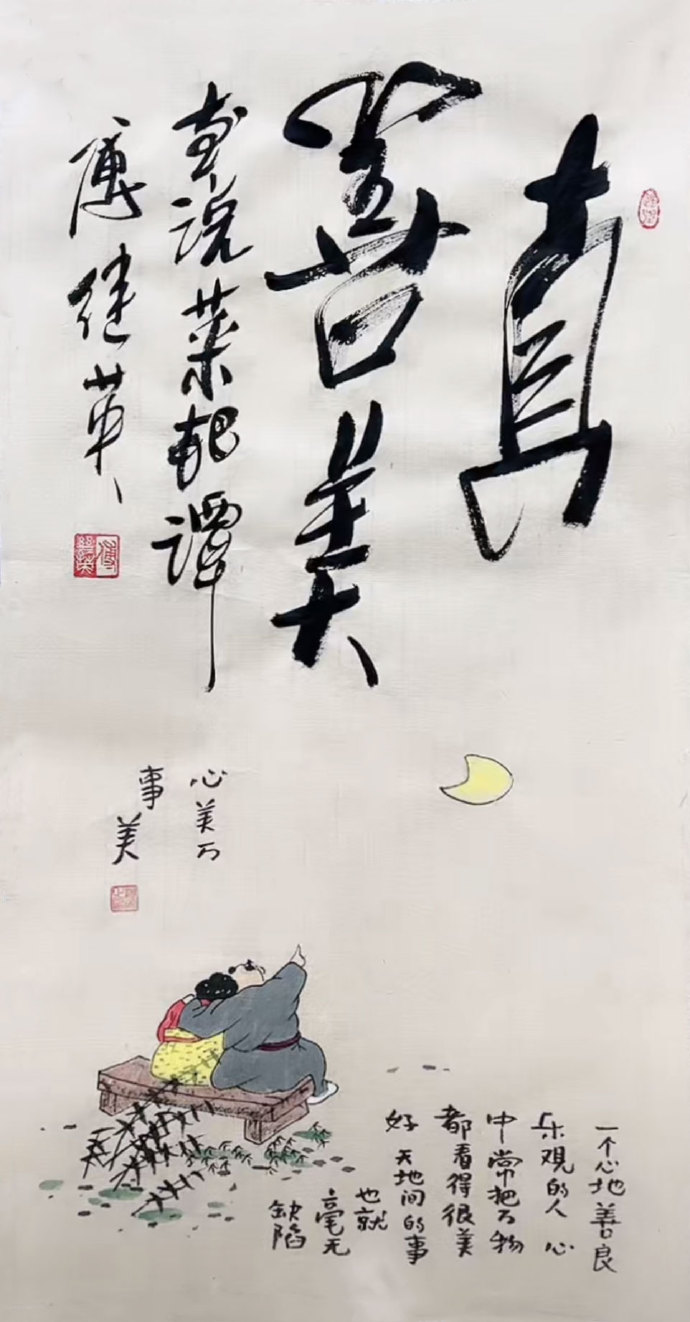 真
善美
画说菜根谭
心美万
事美
一个心地善良
乐观的人 心
中常把万物
都看得很美
好 天地间的事
也就
毫无
缺陷